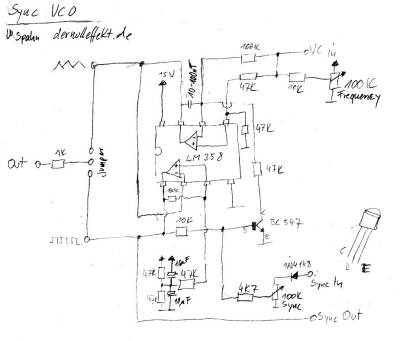 Sync VCO
Spahn dernulleffekt.de
15V
10-100nF
100K
VC in
47K
10K
100K
Frequency
Out
1K
LM 358
47K
47K
100K
10K
BC 547
C
B
E
C
B
E
47K
10µF
47K
47K
10µF
1N4148
Sync In
4K7
100K
Sync
Sync Out